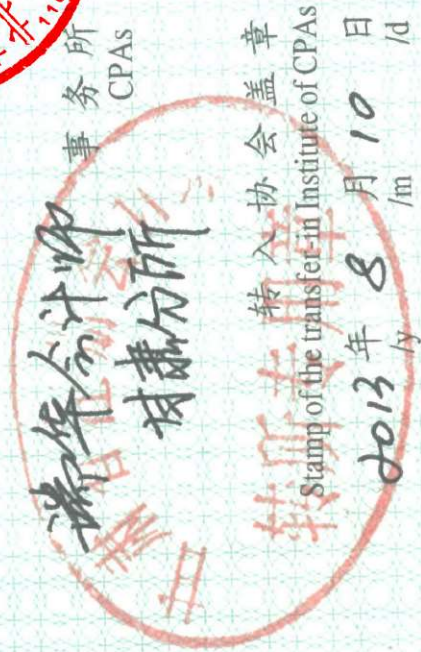 瑞华会计师 事务所
CPAs
甘肃分所
转入协会盖章
Stamp of the transfer-in Institute of CPAs
2013 年 8 月 10 日
/y /m /d
转所专用章